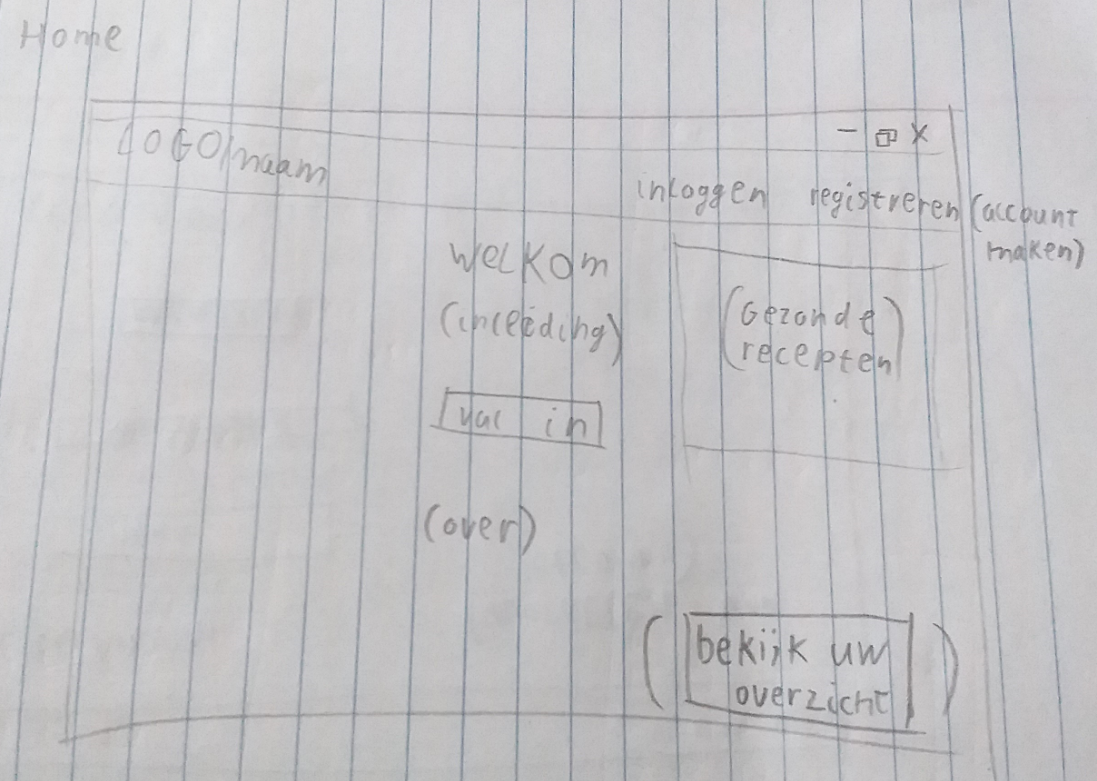 Home
LOGO/naam
inloggen registreren (account
maken)
WELKOM
(inleiding)
(Gezonde
recepten)
vul in
(over)
(bekijk uw
overzicht)